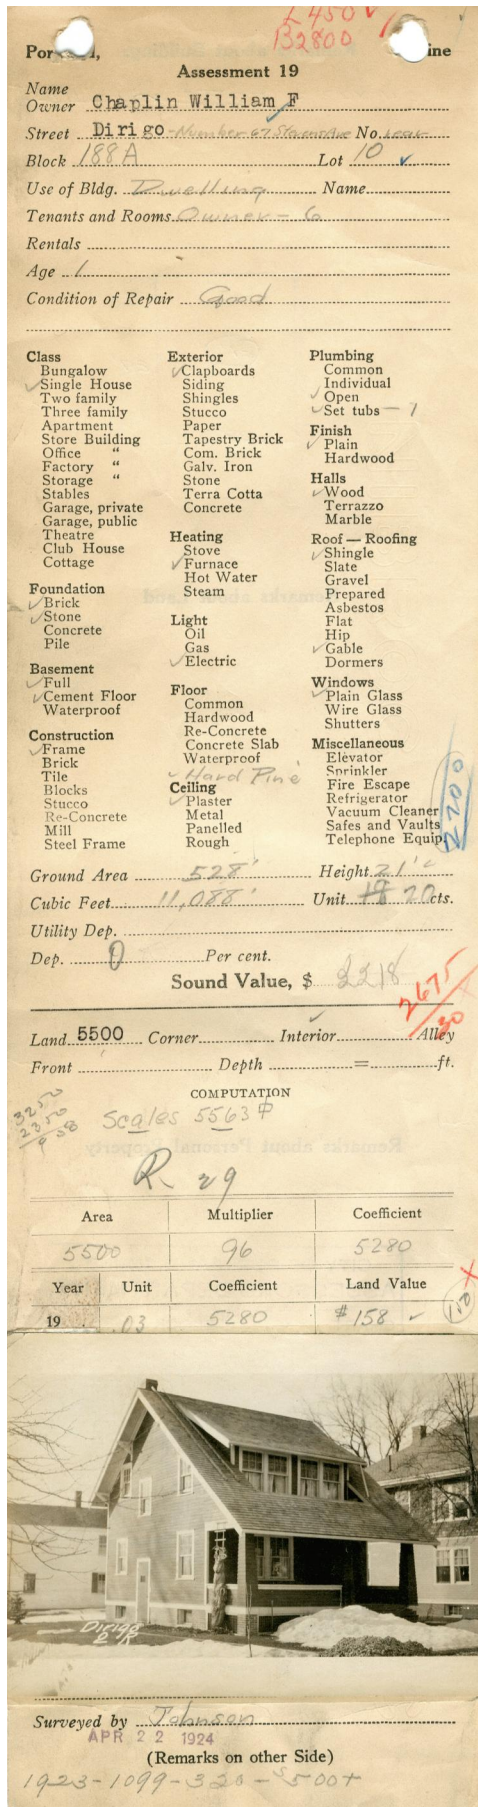 £450 ✓
B2800
Por , ine
Assessment 19
Name
Owner Chaplin William F
Street Dirigo - Number 67 Stevens Ave No. rear
Block 188A Lot 10 ✓
Use of Bldg. Dwelling Name
Tenants and Rooms Owner - 6
Rentals
Age 1
Condition of Repair Good
Class
Bungalow
✓ Single House
Two family
Three family
Apartment
Store Building
Office "
Factory "
Storage "
Stables
Garage, private
Garage, public
Theatre
Club House
Cottage
Foundation
✓ Brick
✓ Stone
Concrete
Pile
Basement
✓ Full
✓ Cement Floor
Waterproof
Construction
✓ Frame
Brick
Tile
Blocks
Stucco
Re-Concrete
Mill
Steel Frame
Exterior
✓ Clapboards
Siding
Shingles
Stucco
Paper
Tapestry Brick
Com. Brick
Galv. Iron
Stone
Terra Cotta
Concrete
Heating
Stove
✓ Furnace
Hot Water
Steam
Light
Oil
Gas
✓ Electric
Floor
Common
Hardwood
Re-Concrete
Concrete Slab
Waterproof
✓ Hard Pine
Ceiling
✓ Plaster
Metal
Panelled
Rough
Plumbing
Common
Individual
✓ Open
✓ Set tubs - 1
Finish
✓ Plain
Hardwood
Halls
✓ Wood
Terrazzo
Marble
Roof — Roofing
✓ Shingle
Slate
Gravel
Prepared
Asbestos
Flat
Hip
✓ Gable
Dormers
Windows
✓ Plain Glass
Wire Glass
Shutters
Miscellaneous
Elevator
Sprinkler
Fire Escape
Refrigerator
Vacuum Cleaner
Safes and Vaults
Telephone Equip.
2200
Ground Area 528' Height 21'
Cubic Feet 11,088' Unit 18 20 cts.
Utility Dep.
Dep. 0 Per cent.
Sound Value, $ 2218
2675
/30
Land 5500 Corner Interior ✓ Alley
Front Depth = ft.
COMPUTATION
3250
2350
Scales 5563
R 29
Area Multiplier Coefficient
5500 96 5280
Year Unit Coefficient Land Value
19 .03 5280 $158 ✓
Dirigo
2 R
Surveyed by Johnson
APR 22 1924
(Remarks on other Side)
1923-1099-320-$500+